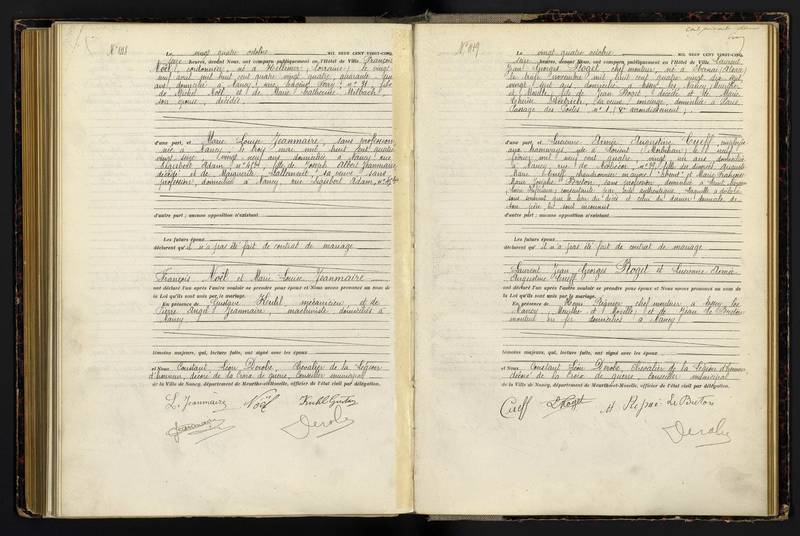 Le vingt quatre octobre MIL NEUF CENT VINGT-CINQ,
heures, devant Nous, ont comparu publiquement en l'Hôtel de Ville François
Noël, cordonnier, né à Hellimer (Lorraine) le vingt
neuf avril mil huit cent quatre vingt quatre, quarante un
ans, domicilié à Nancy, rue n° 31 fils
de Michel Noël et de Marie Catherine
son épouse, décédés
d'une part, et Marie Louise Jeanmaire, sans profession
née à Nancy, le trois mai mil huit cent quatre
vingt seize, vingt neuf ans, domiciliée à Nancy, rue
Sigisbert Adam, n° fille de Joseph Albert Jeanmaire
décédé et de Marguerite sa veuve, sans
profession, domiciliée à Nancy, rue Sigisbert Adam, n°
d'autre part ; aucune opposition n'existant
Les futurs époux
déclarent qu'il n'a pas été fait de contrat de mariage
François Noël et Marie Louise Jeanmaire
ont déclaré l'un après l'autre vouloir se prendre pour époux et Nous avons prononcé au nom de
la Loi qu'ils sont unis par le mariage.
En présence de Gustave mécanicien et de
Pierre Ange Jeanmaire, machiniste domiciliés à
Nancy
témoins majeurs, qui, lecture faite, ont signé avec les époux
et Nous Constant Léon Derobe, Chevalier de la Légion
d'honneur, décoré de la Croix de guerre, Conseiller municipal
de la Ville de Nancy, département de Meurthe-et-Moselle, officier de l'état civil par délégation.
L. Jeanmaire Noël
Jeanmaire Derobe
N° 819
Le vingt quatre octobre MIL NEUF CENT VINGT-CINQ,
heures, devant Nous, ont comparu publiquement en l'Hôtel de Ville Laurent
Jean Georges Ploget, chef monteur, né à
le treize novembre mil huit cent quatre vingt dix sept,
vingt sept ans, domicilié à Essey les Nancy, Meurthe
et Moselle, fils de Jean Ploget, décédé et de Marie
Thérèse sa veuve, concierge, domiciliée à Paris,
Passage des n° arrondissement ;
d'une part, et Suzanne Aimée Augustine Cueff, employée
née à Lorient (Morbihan) le neuf
février mil neuf cent quatre, vingt un ans, domiciliée
à Nancy, rue de n° fille de Auguste
Marie Cueff, chaudronnier et Marie Françoise
Marie Josèphe Breton, sans profession, domiciliée à Saint
Loire Inférieure, consentante par acte authentique, laquelle a déclaré
sous serment que le lieu du décès et celui du dernier domicile de
son père, lui sont inconnus
d'autre part ; aucune opposition n'existant
Les futurs époux
déclarent qu'il n'a pas été fait de contrat de mariage
Laurent Jean Georges Ploget et Suzanne Aimée
Augustine Cueff
ont déclaré l'un après l'autre vouloir se prendre pour époux et Nous avons prononcé au nom de
la Loi qu'ils sont unis par le mariage.
En présence de Henri chef monteur, à Essey les
Nancy, Meurthe et Moselle, et de Jean Le Breton
monteur en fer domiciliés à Nancy
témoins majeurs, qui, lecture faite, ont signé avec les époux
et Nous Constant Léon Derobe, Chevalier de la Légion d'honneur
décoré de la Croix de guerre, Conseiller municipal
de la Ville de Nancy, département de Meurthe-et-Moselle, officier de l'état civil par délégation.
Cueff Ploget Le Breton
Derobe